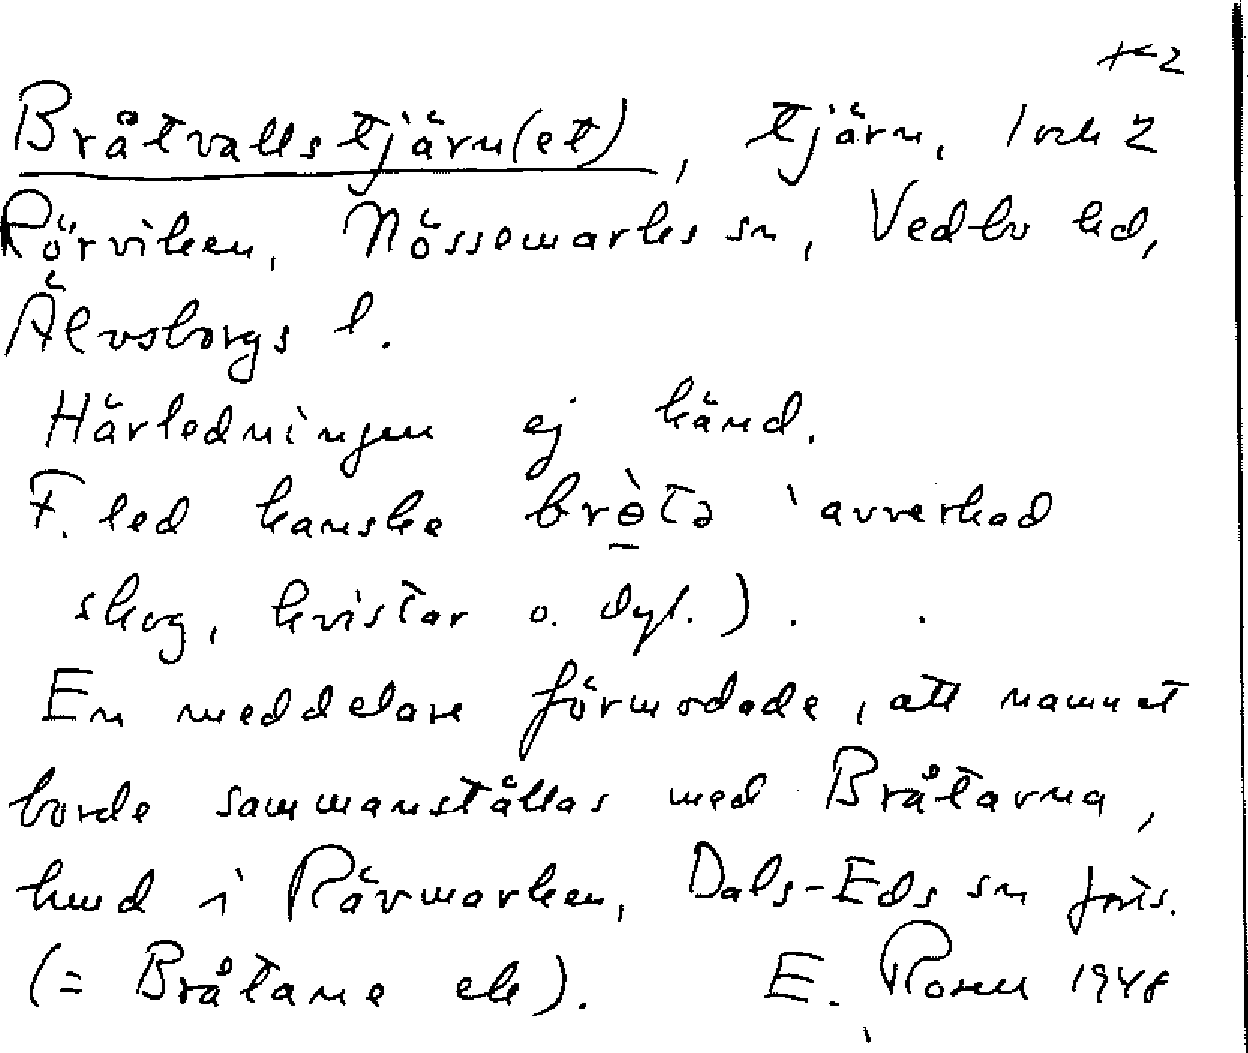 Bråtvallstjärn(et), tjärn, 1 och 2
Rörviken, Nössemarks sn, Vedbo hd,
Älvsborgs l.
Härledningen ej känd.
F. led kanske bròtə 'avverkad
skog, kvistar o. dyl.).
En meddelare förmodade, att namnet
borde sammanställas med Bråtarna,
hmd i Rävmarken, Dals-Eds sn
(= Bråtane ek). E. Rosen 1948